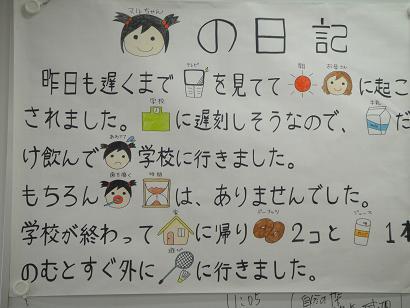 の日記
昨日も遅くまで テレビ を見てて 朝 お母さん に起こ
されました。 学校 に遅刻しそうなので、 牛乳 だ
け飲んで あわてて 学校に行きました。
もちろん 歯を磨く 時間 は、ありませんでした。
学校が終わって 家 に帰り 2コと ジュース 1本
のむとすぐ外に 遊び に行きました。
11:05 自分の